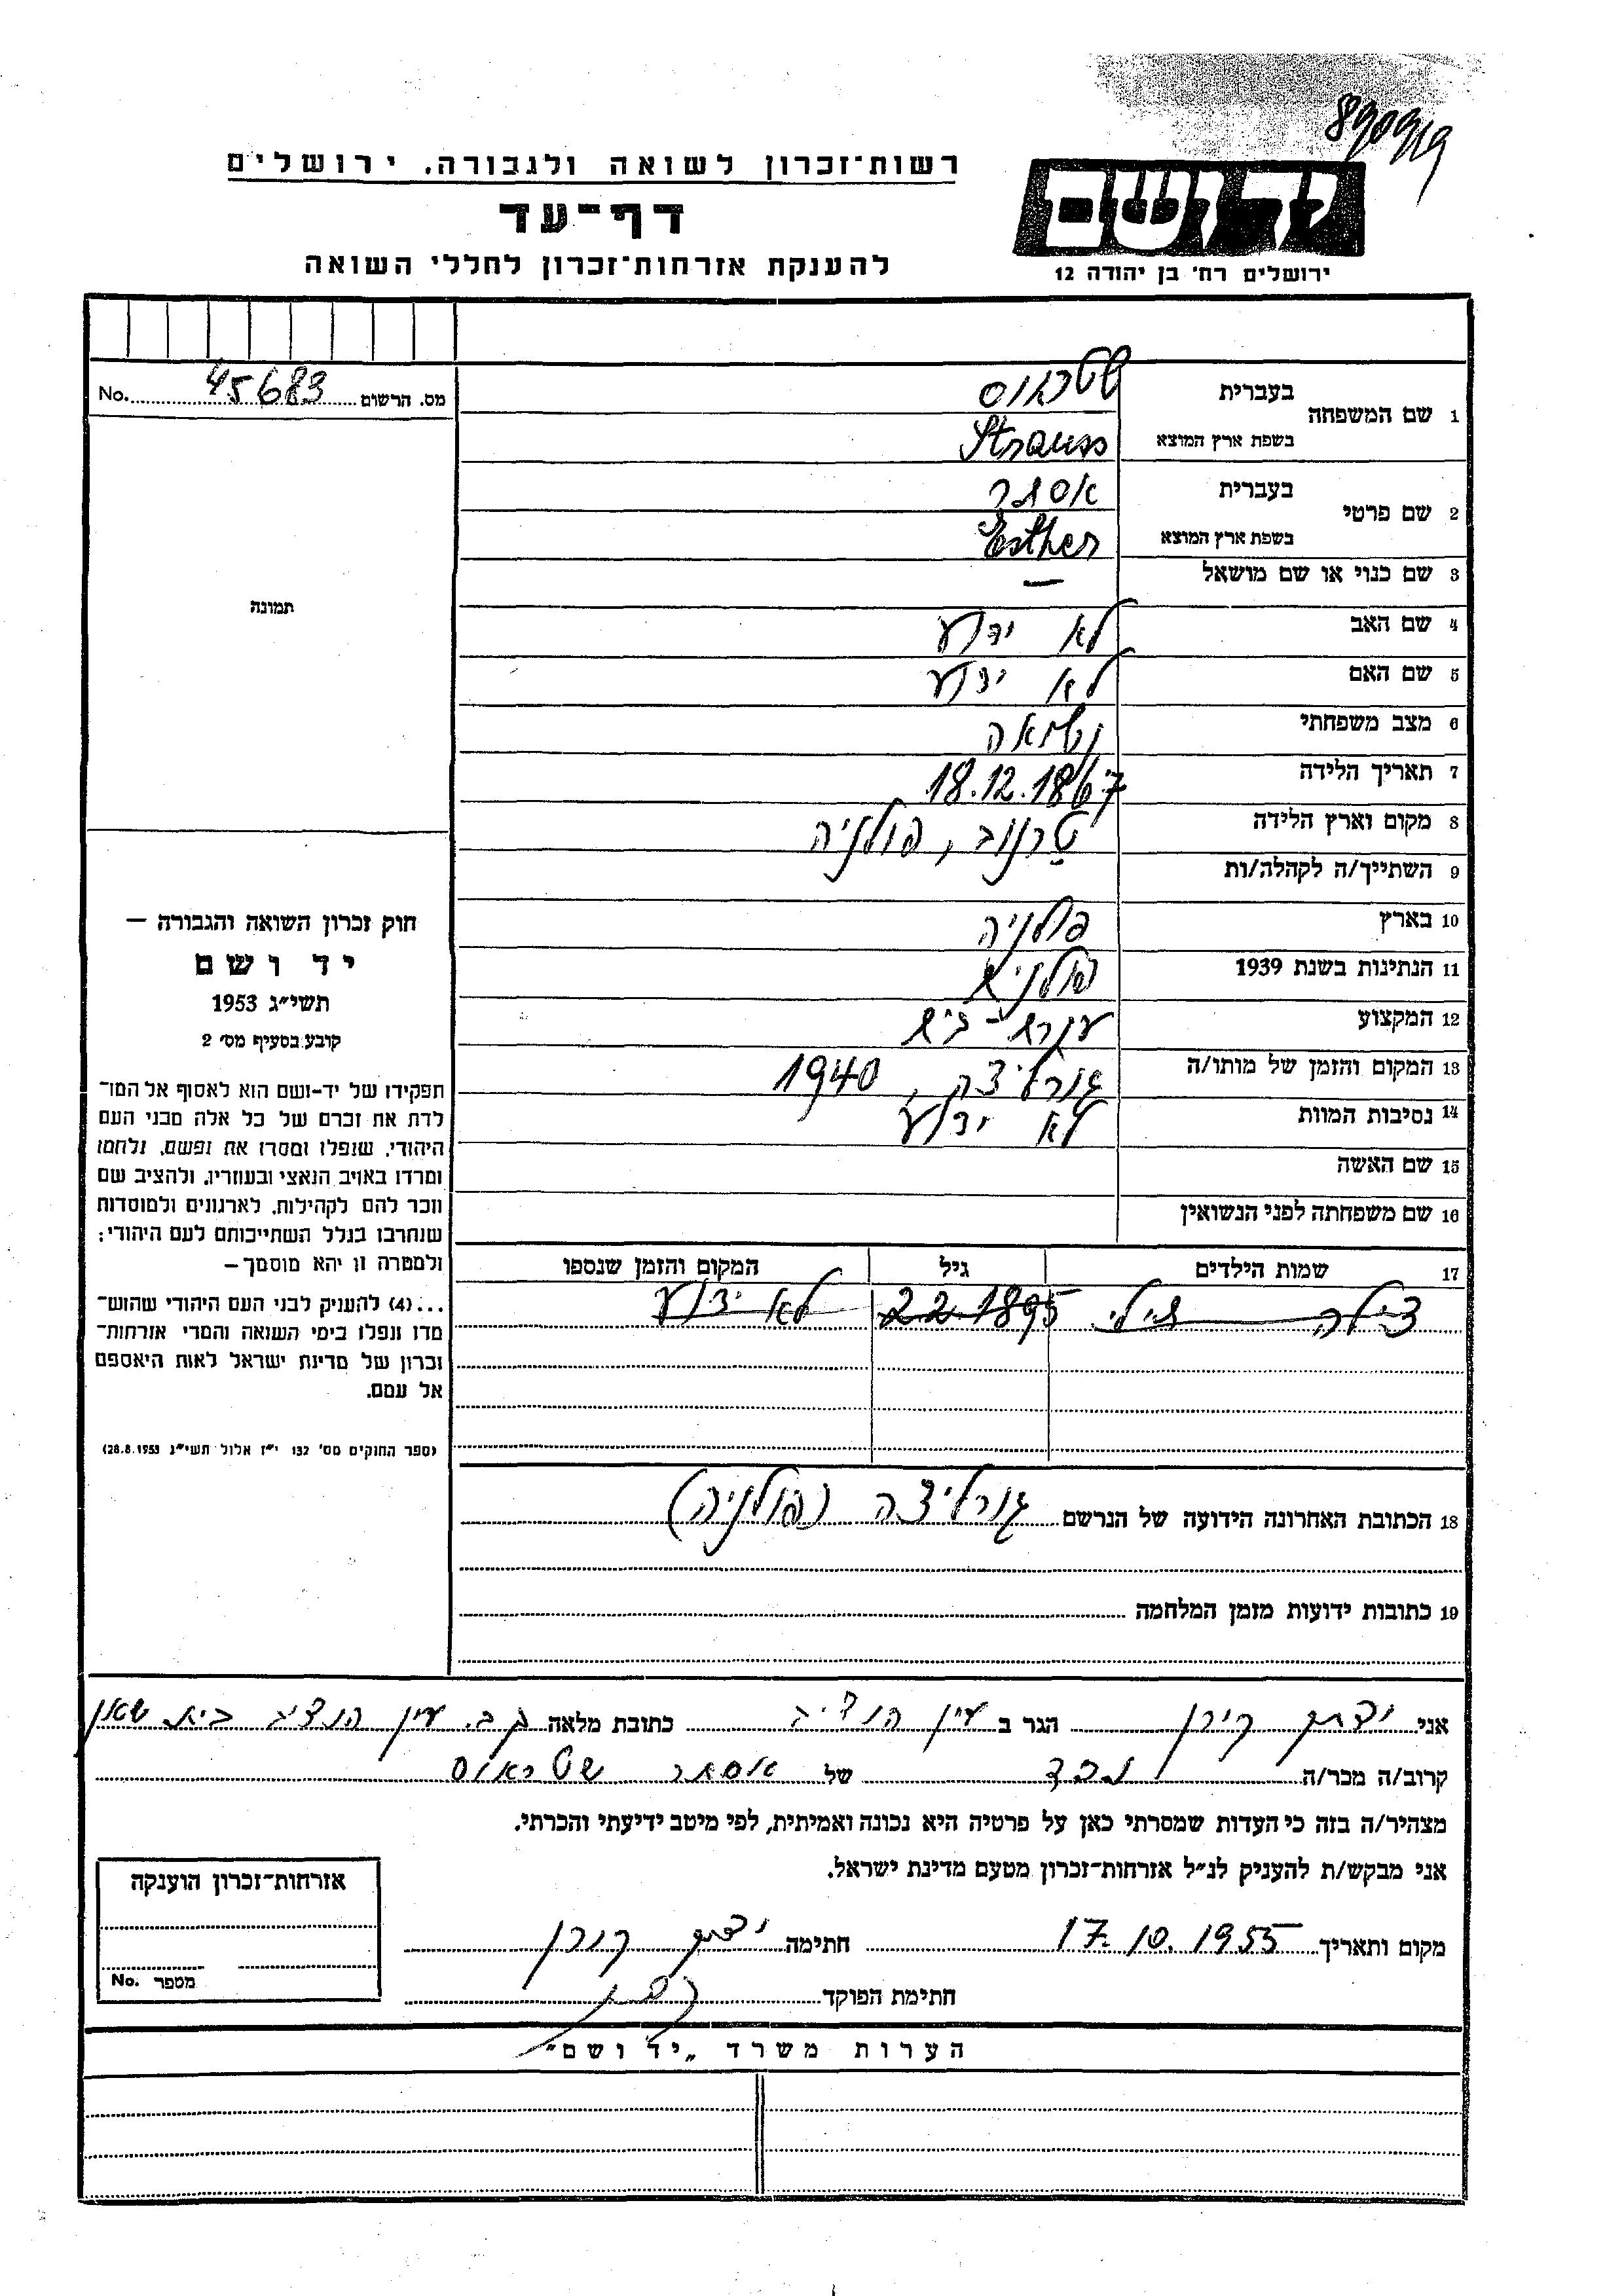 רשות־זכרון לשואה ולגבורה. ירושלים
דף־עד
להענקת אזרחות־זכרון לחללי השואה
יד ושם
ירושלים רח' בן יהודה 12
מס. הרשום 45683 No.
1 שם המשפחה
בעברית שטראוס
בשפת ארץ המוצא Strauss
2 שם פרטי
בעברית אסתר
בשפת ארץ המוצא Esther
3 שם כנוי או שם מושאל —
4 שם האב לא ידוע
5 שם האם לא ידוע
6 מצב משפחתי נשואה
7 תאריך הלידה 18.12.1867
8 מקום וארץ הלידה טרנוב, פולניה
9 השתייך/ה לקהלה/ות
10 בארץ פולניה
11 הנתינות בשנת 1939 פולנית
12 המקצוע עקרת-בית
13 המקום והזמן של מותו/ה גורליצה, 1940
14 נסיבות המוות לא ידוע
15 שם האשה
16 שם משפחתה לפני הנשואין
17 שמות הילדים גיל המקום והזמן שנספו
צילה 22.1895 לא ידוע
18 הכתובת האחרונה הידועה של הנרשם גורליצה (פולניה)
19 כתובות ידועות מזמן המלחמה
תמונה
חוק זכרון השואה והגבורה —
יד ושם
תשי״ג 1953
קובע בסעיף מס' 2
תפקידו של יד-ושם הוא לאסוף אל המו־
לדת את זכרם של כל אלה מבני העם
היהודי, שנפלו ומסרו את נפשם, נלחמו
ומרדו באויב הנאצי ובעוזריו, ולהציב שם
וזכר להם לקהילות, לארגונים ולמוסדות
שנחרבו בגלל השתייכותם לעם היהודי:
ולמטרה זו יהא מוסמך —
...(4) להעניק לבני העם היהודי שהוש־
מדו ונפלו בימי השואה והמרי אזרחות־
זכרון של מדינת ישראל לאות היאספם
אל עמם.
(ספר החוקים מס' 132 י״ז אלול תשי״ג 28.8.1953)
אני יצחק קורן הגר ב עין הנצי״ב כתובת מלאה קב. עין הנצי״ב בית שאן
קרוב/ה מכר/ה נכד של אסתר שטראוס
מצהיר/ה בזה כי העדות שמסרתי כאן על פרטיה היא נכונה ואמיתית, לפי מיטב ידיעתי והכרתי.
אני מבקש/ת להעניק לנ״ל אזרחות־זכרון מטעם מדינת ישראל.
מקום ותאריך 17.10.1955 חתימה יצחק קורן
חתימת הפוקד
אזרחות־זכרון הוענקה
מספר No.
הערות משרד „יד ושם״